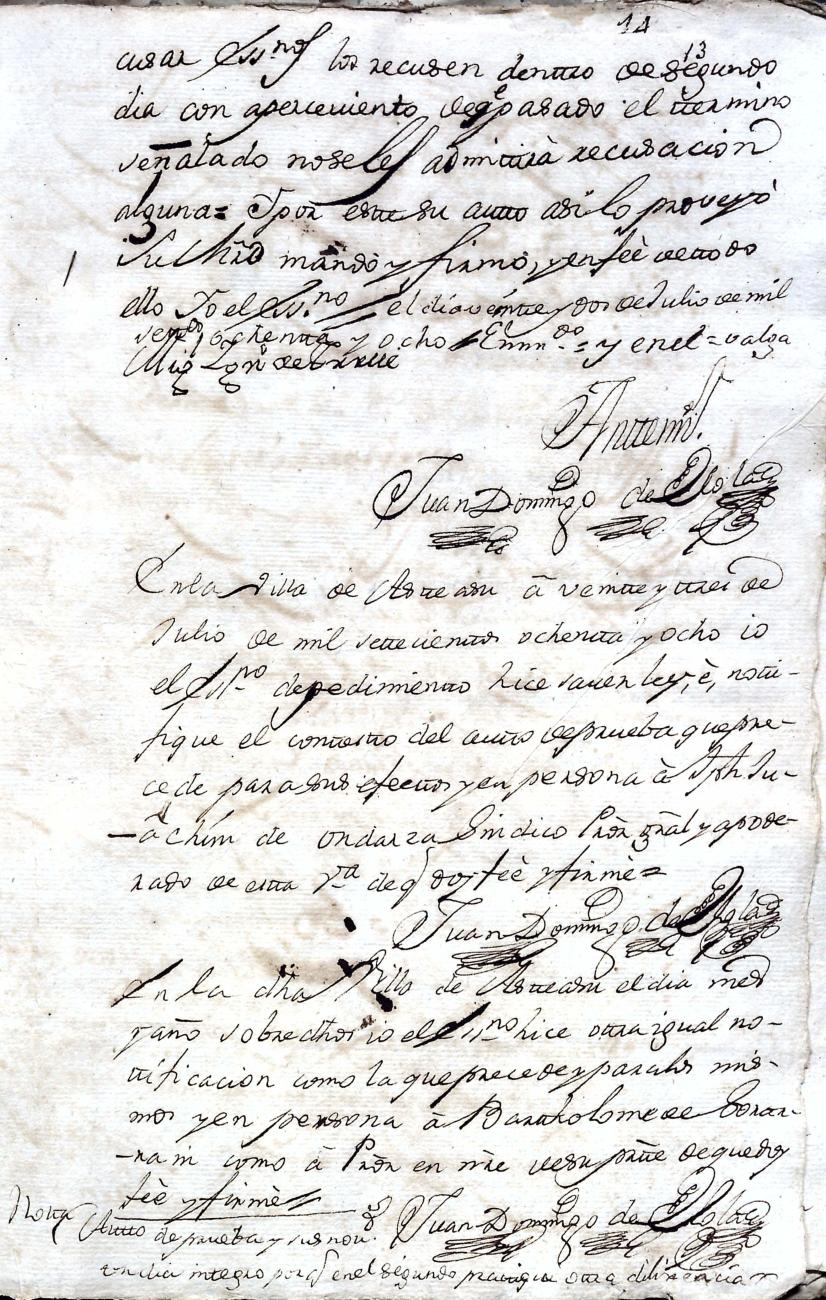 14
13
cusar Essnos los recusen dentro de segundo
dia con apercevimiento de qe pasado el ttermino
señalado no se les admitirà recusacion
alguna= Y por este su auto asi lo proveyò
Su Mrd mandò y firmò, y en feè de ttodo
ello Yo el Essno el dia veintte y dos de Julio de mil
settos ochenta y ocho = Enmdo = y en el = valga
Antemi
Juan Domingo de
En la Villa de Astteasu â veintte y ttres de
Julio de mil settecienttos ochentta y ocho io
el Essno de pedimientto hice saver ley, è, notti-
fique el contestto del autto de prueba que pre-
cede para sus efecttos y en persona â Juo-
âchim de Ondarza Sindico Pror gral y apode-
rado de estta Va de q doy feè y firmè=
Juan Domingo de
En la dha Villa de Astteasu el dia mes
y año sobredhos io el Essno hice otra igual no-
ttificacion como la que precede y para los mis-
mos y en persona â Barttholome de
como â Pror en nre de su partte de que doy
feè y firmè=
Juan Domingo de
Notta
Autto de prueba y sus nott.
un dia integro por q en el segundo practique otra dilixencia